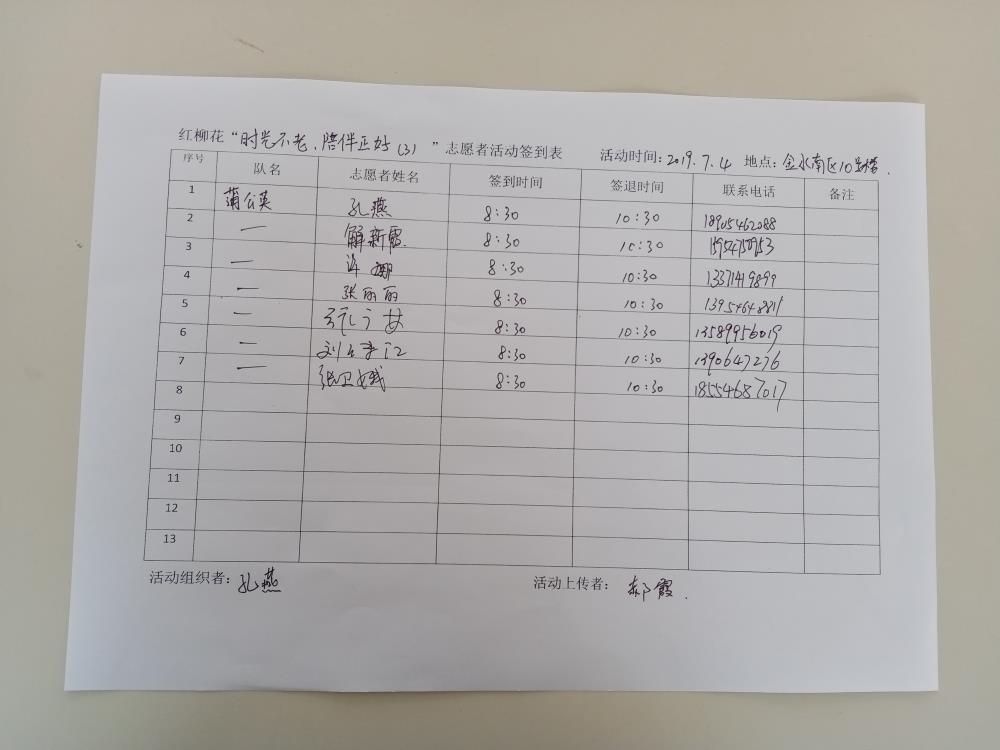 红柳花“时光不老、陪伴正好（3）”志愿者活动签到表 活动时间：2019.7.4 地点：金水南区10号楼.
序号 队名 志愿者姓名 签到时间 签退时间 联系电话 备注
1 蒲公英 孔燕 8:30 10:30 18905462088
2 — 解新霞 8:30 10:30
3 — 许娜 8:30 10:30 13371419899
4 — 张丽丽 8:30 10:30 13954648811
5 — 8:30 10:30 13589956019
6 — 8:30 10:30 1390647276
7 — 张卫娥 8:30 10:30 18554687017
8
9
10
11
12
13
活动组织者：孔燕 活动上传者：郝霞.